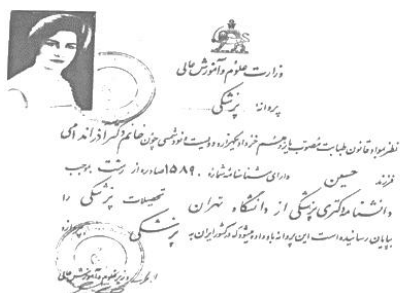 وزارت علوم و آموزش عالی
پروانه پزشکی
نظر بمواد قانون طبابت مصوب یازدهم خرداد یکهزار و دویست و نود شمسی چون خانم دکتر آذر اندامی
فرزند حسین دارای شناسنامه شماره ۱۵۸۹۰ صادره از رشت بموجب
دانشنامه دکتری پزشکی از دانشگاه تهران تحصیلات پزشکی را
بپایان رسانیده است این پروانه باو داده میشود که در کشور ایران به پزشکی پردازد
وزیر علوم و آموزش عالی